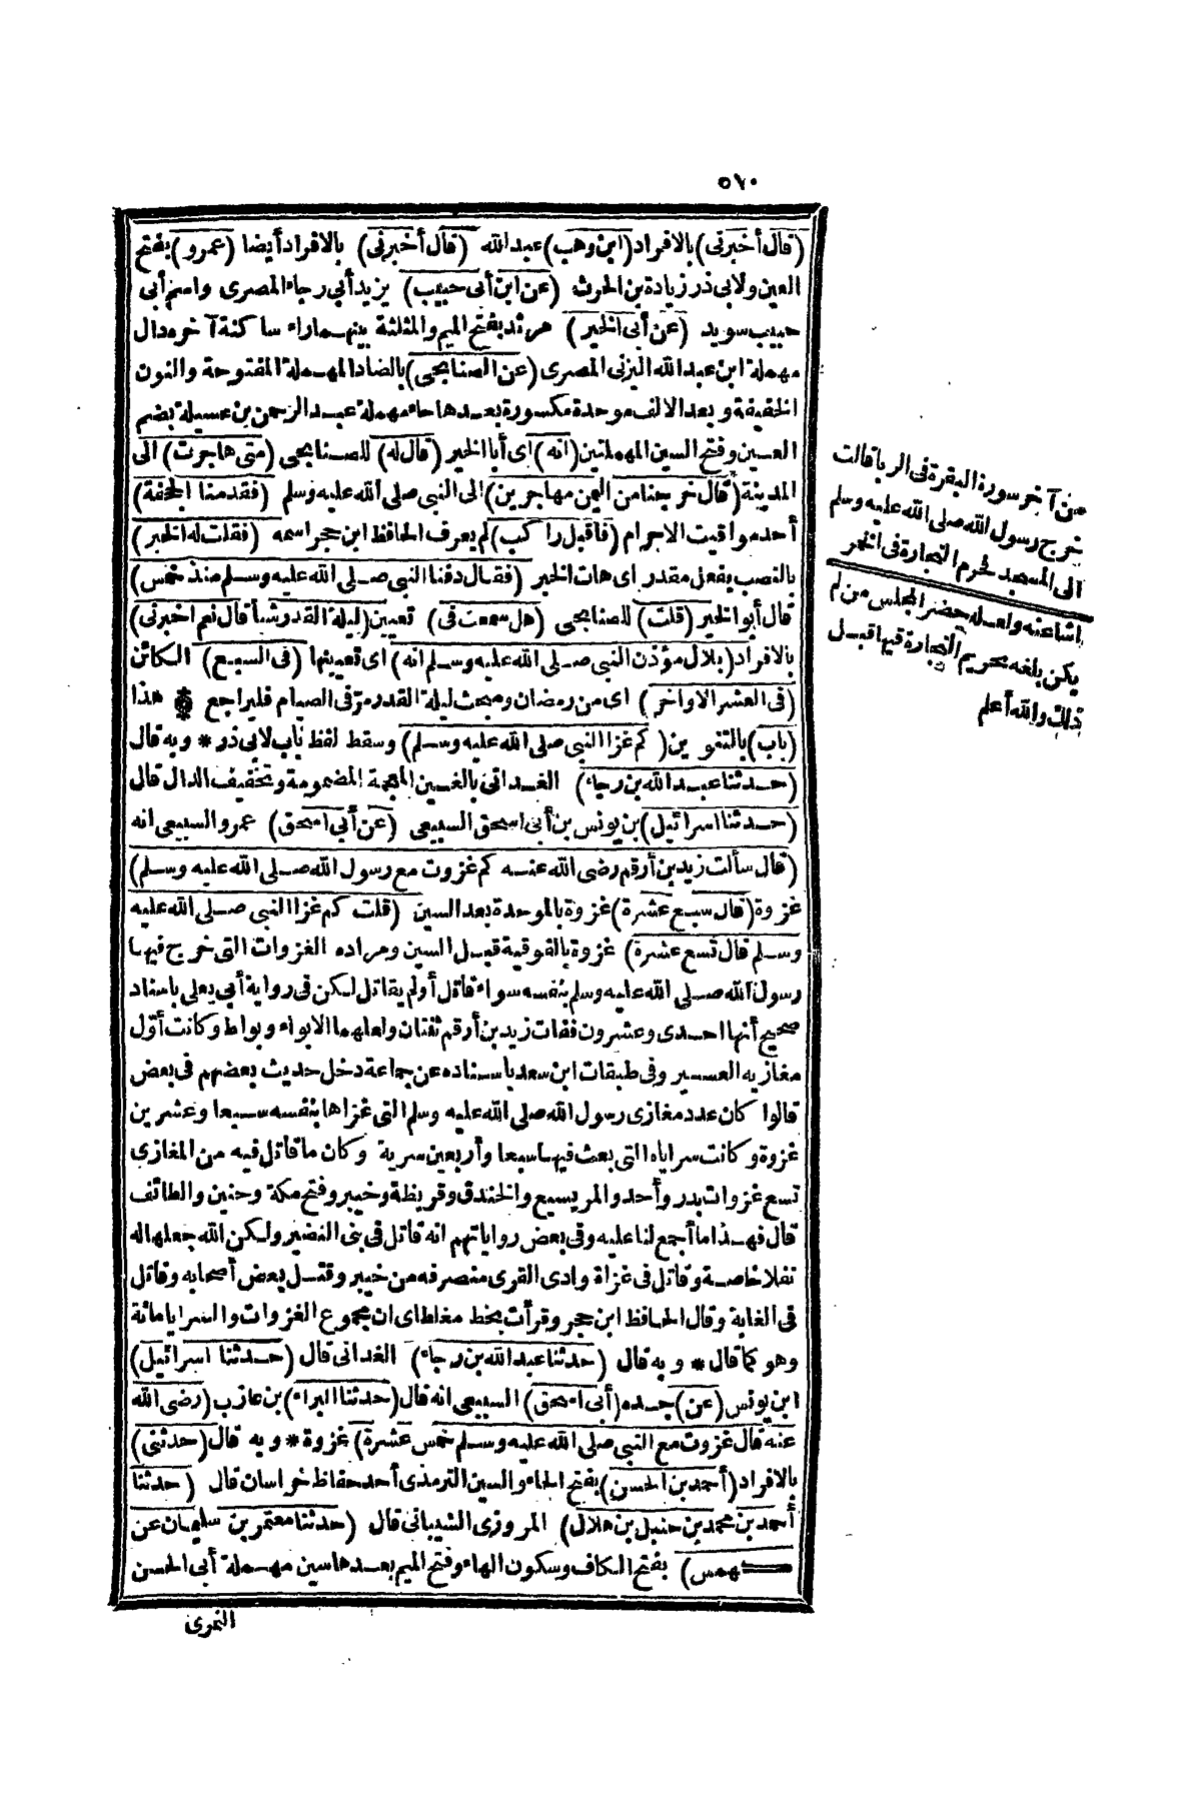 ٥٧٠
(قال أخبرنى) بالافراد (ابن وهب) عبد الله (قال أخبرنى) بالافراد أيضا (عمرو) بفتح
العين ولابى ذر زيادة بن الحرث (عن ابن أبى حبيب) يزيد أبى رجاء المصرى واسم أبى
حبيب سويد (عن أبى الخير) مرثد بفتح الميم والمثلثة بينهما راء ساكنة آخره دال
مهملة ابن عبد الله اليزنى المصرى (عن الصنابحى) بالصاد المهملة المفتوحة والنون
الخفيفة وبعد الالف موحدة مكسورة بعدها حاء مهملة عبد الرحمن بن عسيلة بضم
العين وفتح السين المهملتين (انه) اى أبا الخير (قال له) للصنابحى (متى هاجرت) الى
المدينة (قال خرجنا من اليمن مهاجرين) الى النبى صلى الله عليه وسلم (فقدمنا الجحفة)
أحد مواقيت الاحرام (فاقبل راكب) لم يعرف الحافظ ابن حجر اسمه (فقلت له الخبر)
بالنصب بفعل مقدر اى هات الخبر (فقال دفنا النبى صلى الله عليه وسلم منذ خمس)
قال أبو الخير (قلت) للصنابحى (هل سمعت فى) تعيين (ليلة القدر شيأ قال نعم اخبرنى)
بالافراد (بلال مؤذن النبى صلى الله عليه وسلم انه) اى تعيينها (فى السبع) الكائن
(فى العشر الاواخر) اى من رمضان ومبحث ليلة القدر مرّ فى الصيام فليراجع * هذا
(باب) بالتنوين (كم غزا النبى صلى الله عليه وسلم) وسقط لفظ باب لابى ذر * وبه قال
(حدثنا عبد الله بن رجاء) الغدانى بالغين المعجمة المضمومة وتخفيف الدال قال
(حدثنا اسرائيل) بن يونس بن أبى اسحق السبيعى (عن أبى اسحق) عمرو السبيعى انه
(قال سألت زيد بن أرقم رضى الله عنه كم غزوت مع رسول الله صلى الله عليه وسلم)
غزوة (قال سبع عشرة) غزوة بالموحدة بعد السين (قلت كم غزا النبى صلى الله عليه
وسلم قال تسع عشرة) غزوة بالفوقية قبل السين ومراده الغزوات التى خرج فيها
رسول الله صلى الله عليه وسلم بنفسه سواء قاتل أو لم يقاتل لكن فى رواية أبى يعلى باسناد
صحيح أنها احدى وعشرون ففات زيد بن أرقم ثنتان ولعلهما الابواء وبواط وكانت أوّل
مغازيه العسير وفى طبقات ابن سعد باسناده عن جماعة دخل حديث بعضهم فى بعض
قالوا كان عدد مغازى رسول الله صلى الله عليه وسلم التى غزاها بنفسه سبعا وعشرين
غزوة وكانت سراياه التى بعث فيها سبعا وأربعين سرية وكان ما قاتل فيه من المغازى
تسع غزوات بدر وأحد والمريسيع والخندق وقريظة وخيبر وفتح مكة وحنين والطائف
قال فهذا ما أجمع لنا عليه وفى بعض رواياتهم انه قاتل فى بنى النضير ولكن الله جعلها له
نفلا خاصة وقاتل فى غزاة وادى القرى منصرفه من خيبر وقتل بعض أصحابه وقاتل
فى الغابة وقال الحافظ ابن حجر وقرأت بخط مغلطاى ان مجموع الغزوات والسرايا مائة
وهو كما قال * وبه قال (حدثنا عبد الله بن رجاء) الغدانى قال (حدثنا اسرائيل)
ابن يونس (عن) جده (أبى اسحق) السبيعى انه قال (حدثنا البراء) بن عازب (رضى الله
عنه قال غزوت مع النبى صلى الله عليه وسلم خمس عشرة) غزوة * وبه قال (حدثنى)
بالافراد (أحمد بن الحسن) بفتح الحاء والسين الترمذى أحد حفاظ خراسان قال (حدثنا
أحمد بن محمد بن حنبل بن هلال) المروزى الشيبانى قال (حدثنا معتمر بن سليمان عن
كهمس) بفتح الكاف وسكون الهاء وفتح الميم بعدها سين مهملة أبى الحسن
النمرى
من آخر سورة البقرة فى الربا قالت
خرج رسول الله صلى الله عليه وسلم
الى المسجد فحرم التجارة فى الخمر
اشاعته ولعله حضر المجلس من لم
يكن بلغه تحريم التجارة فيها قبل
ذلك والله أعلم